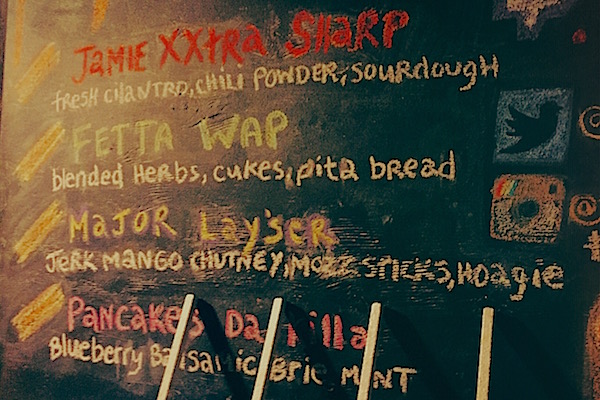 JAMIE XXtRA SHARP
fresh cilantro, chili powder, sourdough
FETTA WAP
blended Herbs, cukes, pita bread
MAJOR Lay'sER
JERK MANGO CHUTNEY, MOZZ STICKS, HOAGIE
PANCAKES Da
Blueberry Balsamic Brie MINT